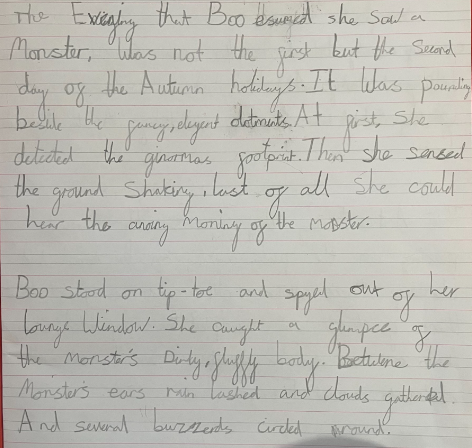 The Evenging that Boo esuried she saw a
Monster, Was not the first but the Second
day of the Autumn holidays. It Was pouring
beside the fancy, elegent At first, She
detected the ginormas footprint. Then she sensed
the ground Shaking, last of all She could
hear the anoing Moning of the monster.
Boo stood on tip-toe and spyed out of her
Lounge Window. She caught a glimpce of
the monster's Dirty, fluffy body. Betwene the
Monster's ears rain lashed and clouds gathered.
And several buzzerds circled around.